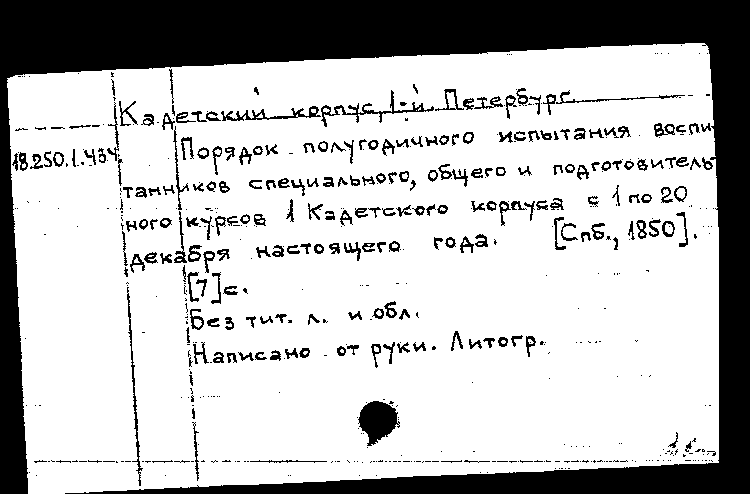 Кадетский корпус, 1-й. Петербург.
18.250.1.434.
Порядок полугодичного испытания воспи-
танников специального, общего и подготовитель-
ного курсов 1 Кадетского корпуса с 1 по 20
декабря настоящего года. [Спб., 1850].
[7]с.
Без тит. л. и обл.
Написано от руки. Литогр.